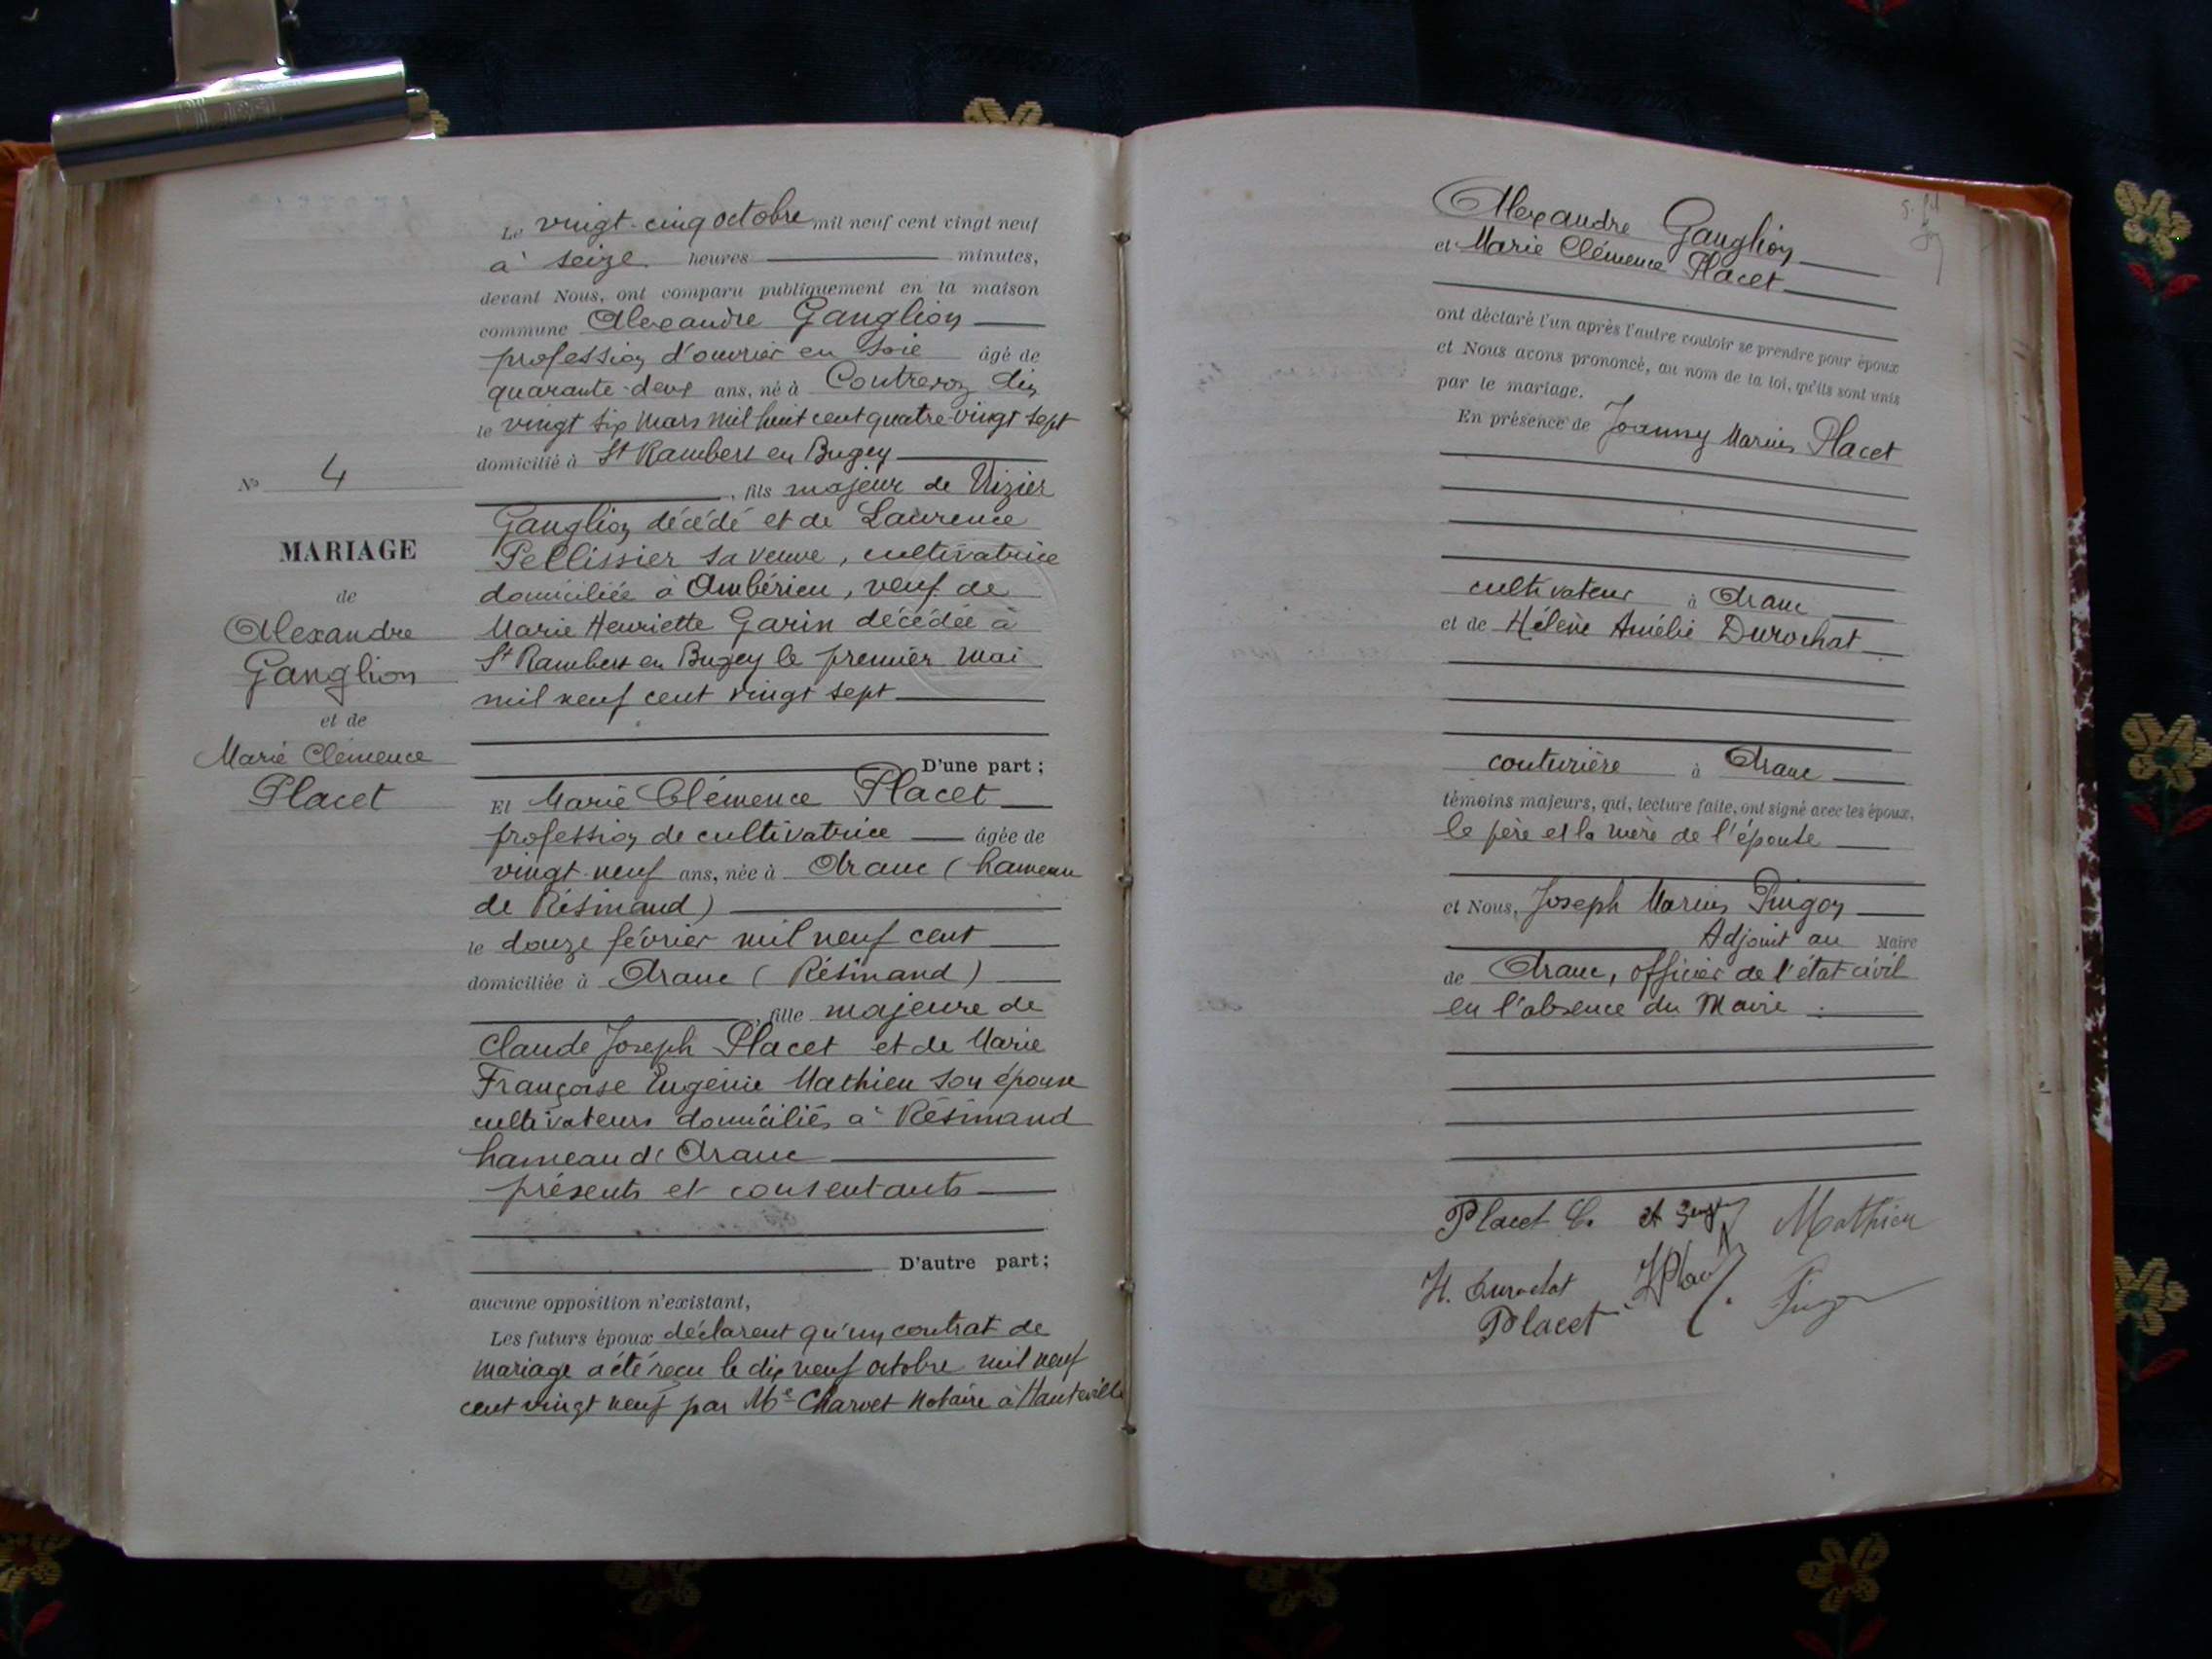 Le vingt-cinq octobre mil neuf cent vingt neuf
à seize heures minutes,
devant Nous, ont comparu publiquement en la maison
commune Alexandre Ganglion
profession d'ouvrier en soie âgé de
quarante-deux ans, né à Contrevoz Ain
le vingt six mars mil huit cent quatre-vingt sept
domicilié à St Rambert en Bugey
, fils majeur de Vizier
Ganglion décédé et de Laurence
Pellissier sa veuve, cultivatrice
domiciliée à Ambérieu, veuf de
Marie Henriette Garin décédée à
St Rambert en Bugey le premier mai
mil neuf cent vingt sept
D'une part ;
Et Marie Clémence Placet
profession de cultivatrice âgée de
vingt-neuf ans, née à Aranc (hameau
de Résinand)
le douze février mil neuf cent
domiciliée à Aranc (Résinand)
, fille majeure de
Claude Joseph Placet et de Marie
Françoise Eugénie Mathieu son épouse
cultivateurs domiciliés à Résinand
hameau d'Aranc
présents et consentants
D'autre part ;
aucune opposition n'existant,
Les futurs époux déclarent qu'un contrat de
mariage a été reçu le dix neuf octobre mil neuf
cent vingt neuf par Me Charvet Notaire à Hauteville
No 4
MARIAGE
de
Alexandre
Ganglion
et de
Marie Clémence
Placet
Alexandre Ganglion
et Marie Clémence Placet
ont déclaré l'un après l'autre vouloir se prendre pour époux
et Nous avons prononcé, au nom de la loi, qu'ils sont unis
par le mariage.
En présence de Joanny Marius Placet
cultivateur à Aranc
et de Hélène Amélie Durochat
couturière à Aranc
témoins majeurs, qui, lecture faite, ont signé avec les époux,
le père et la mère de l'épouse
et Nous, Joseph Marius Pingon
Adjoint au Maire
de Aranc, officier de l'état civil
en l'absence du Maire .
Placet C. Mathieu
H. Durochat
Placet